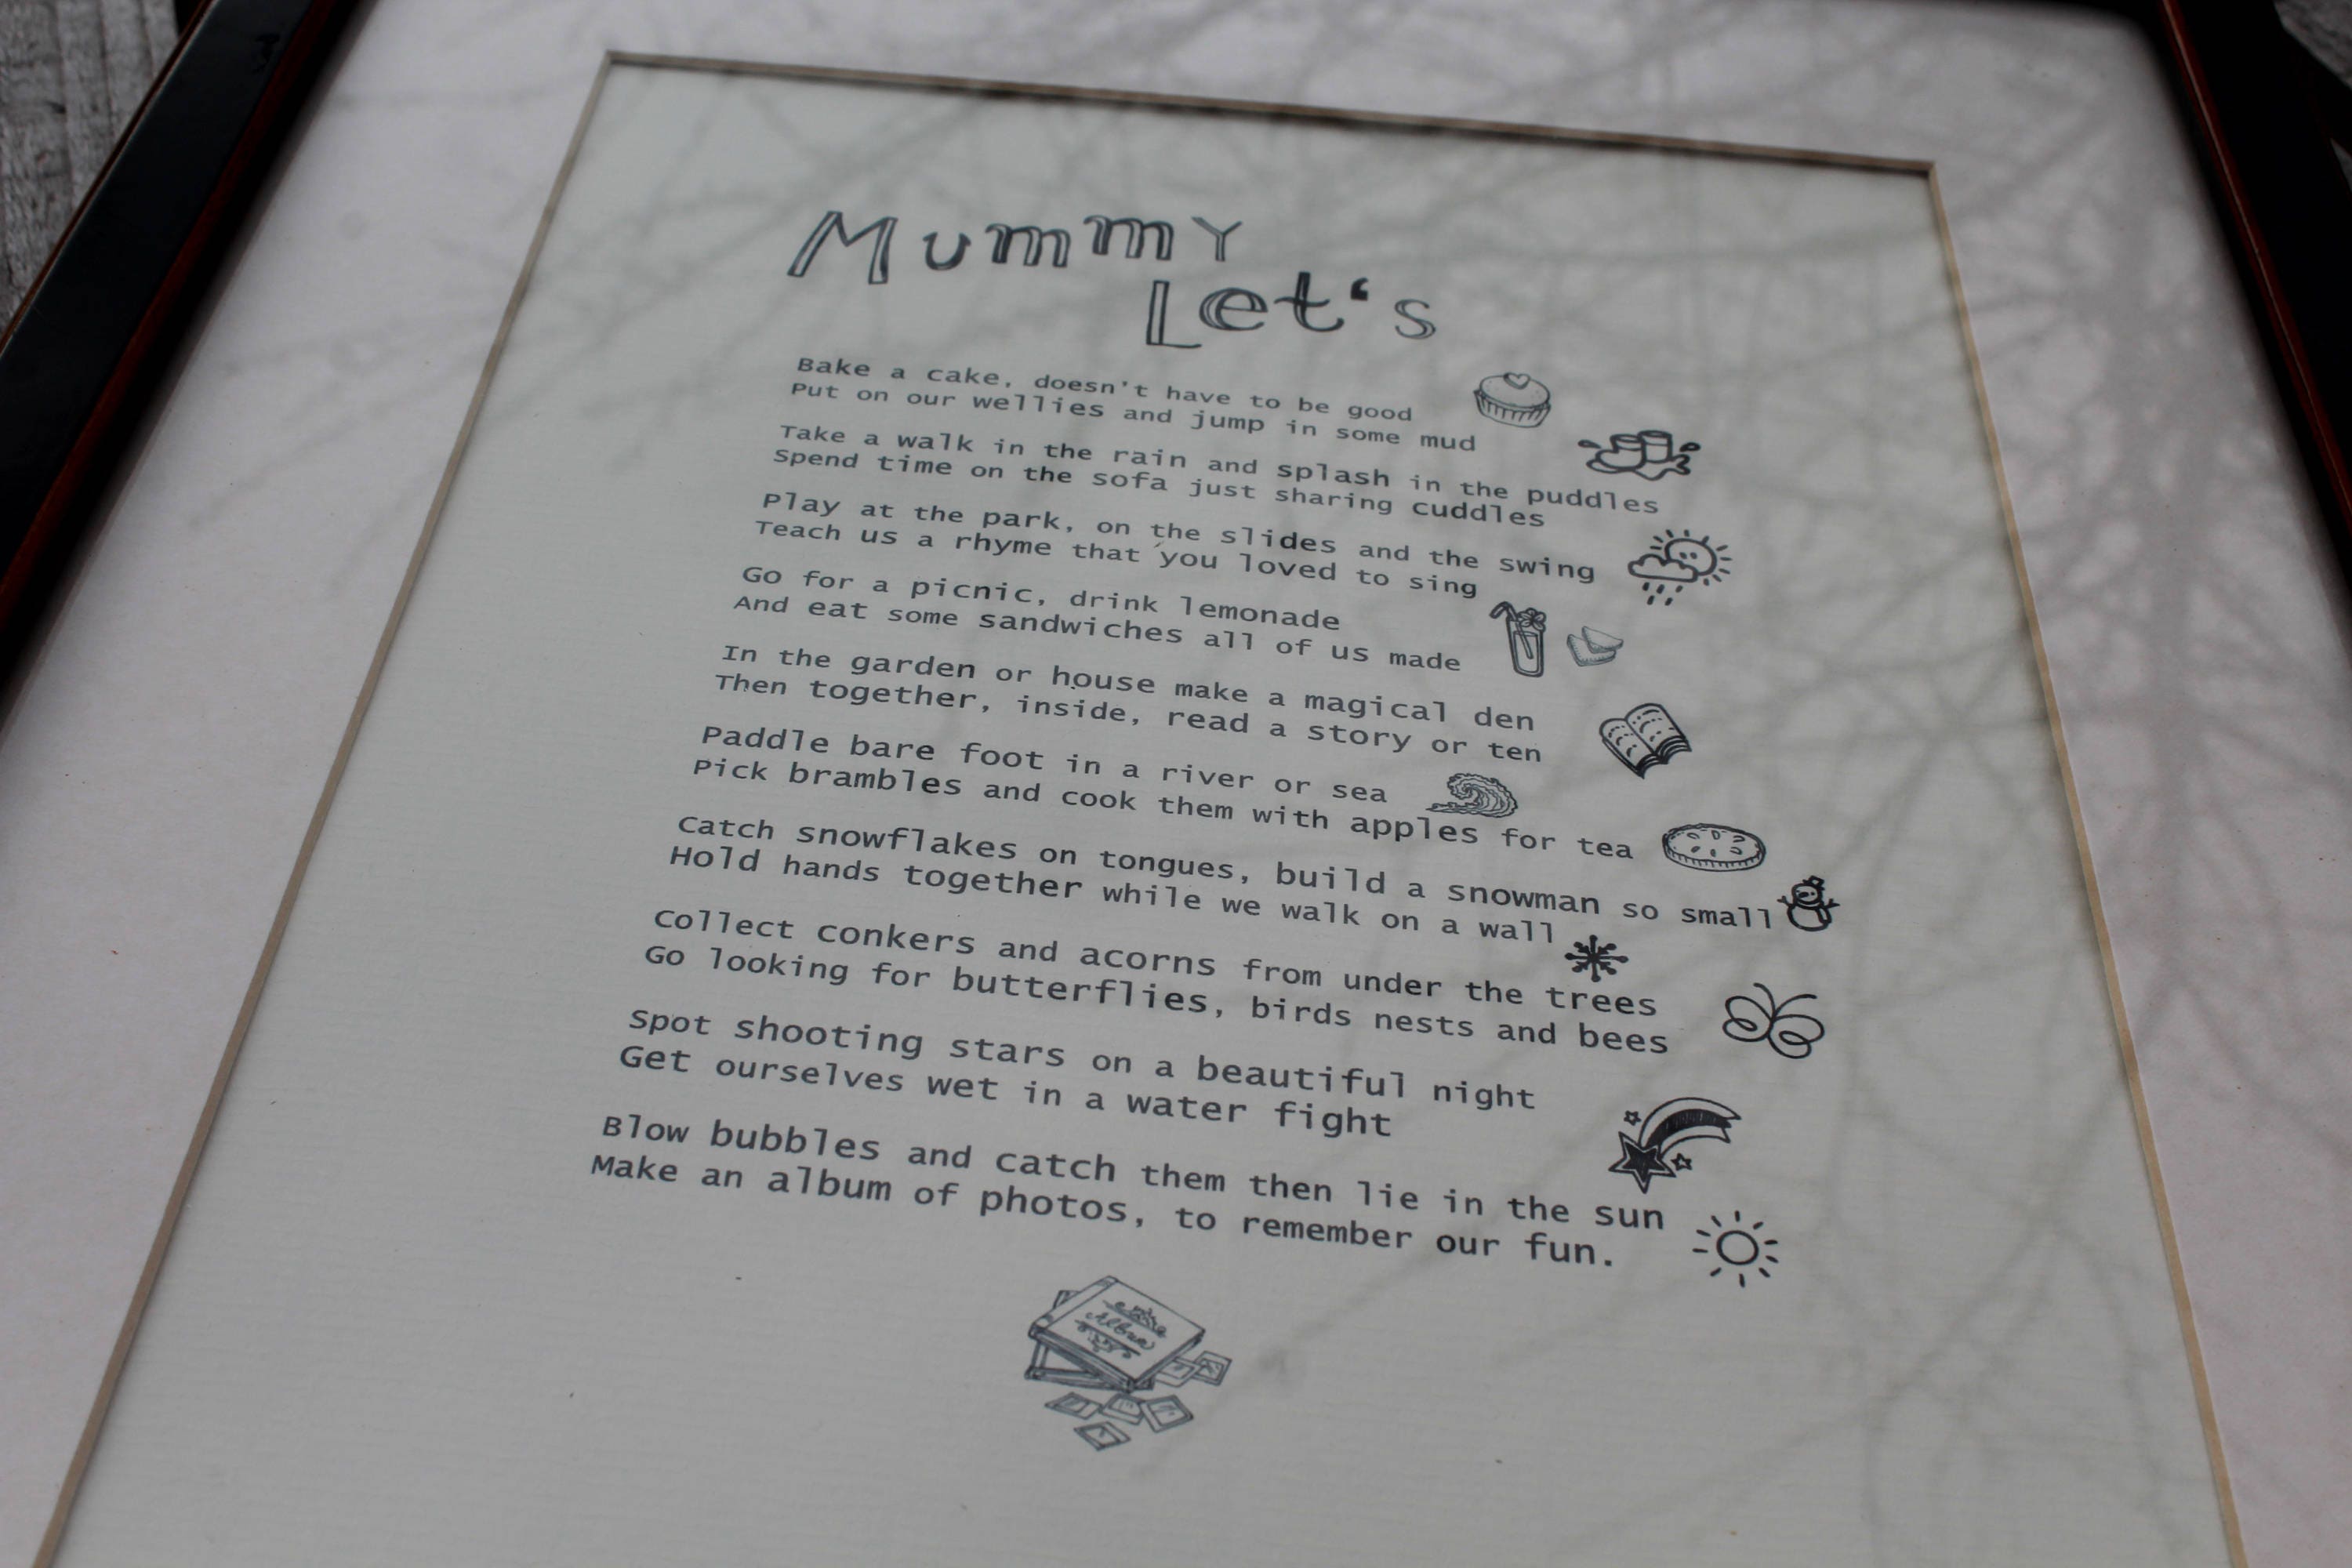 Mummy
Let's
Bake a cake, doesn't have to be good
Put on our wellies and jump in some mud
Take a walk in the rain and splash in the puddles
Spend time on the sofa just sharing cuddles
Play at the park, on the slides and the swing
Teach us a rhyme that you loved to sing
Go for a picnic, drink lemonade
And eat some sandwiches all of us made
In the garden or house make a magical den
Then together, inside, read a story or ten
Paddle bare foot in a river or sea
Pick brambles and cook them with apples for tea
Catch snowflakes on tongues, build a snowman so small
Hold hands together while we walk on a wall
Collect conkers and acorns from under the trees
Go looking for butterflies, birds nests and bees
Spot shooting stars on a beautiful night
Get ourselves wet in a water fight
Blow bubbles and catch them then lie in the sun
Make an album of photos, to remember our fun.
Album